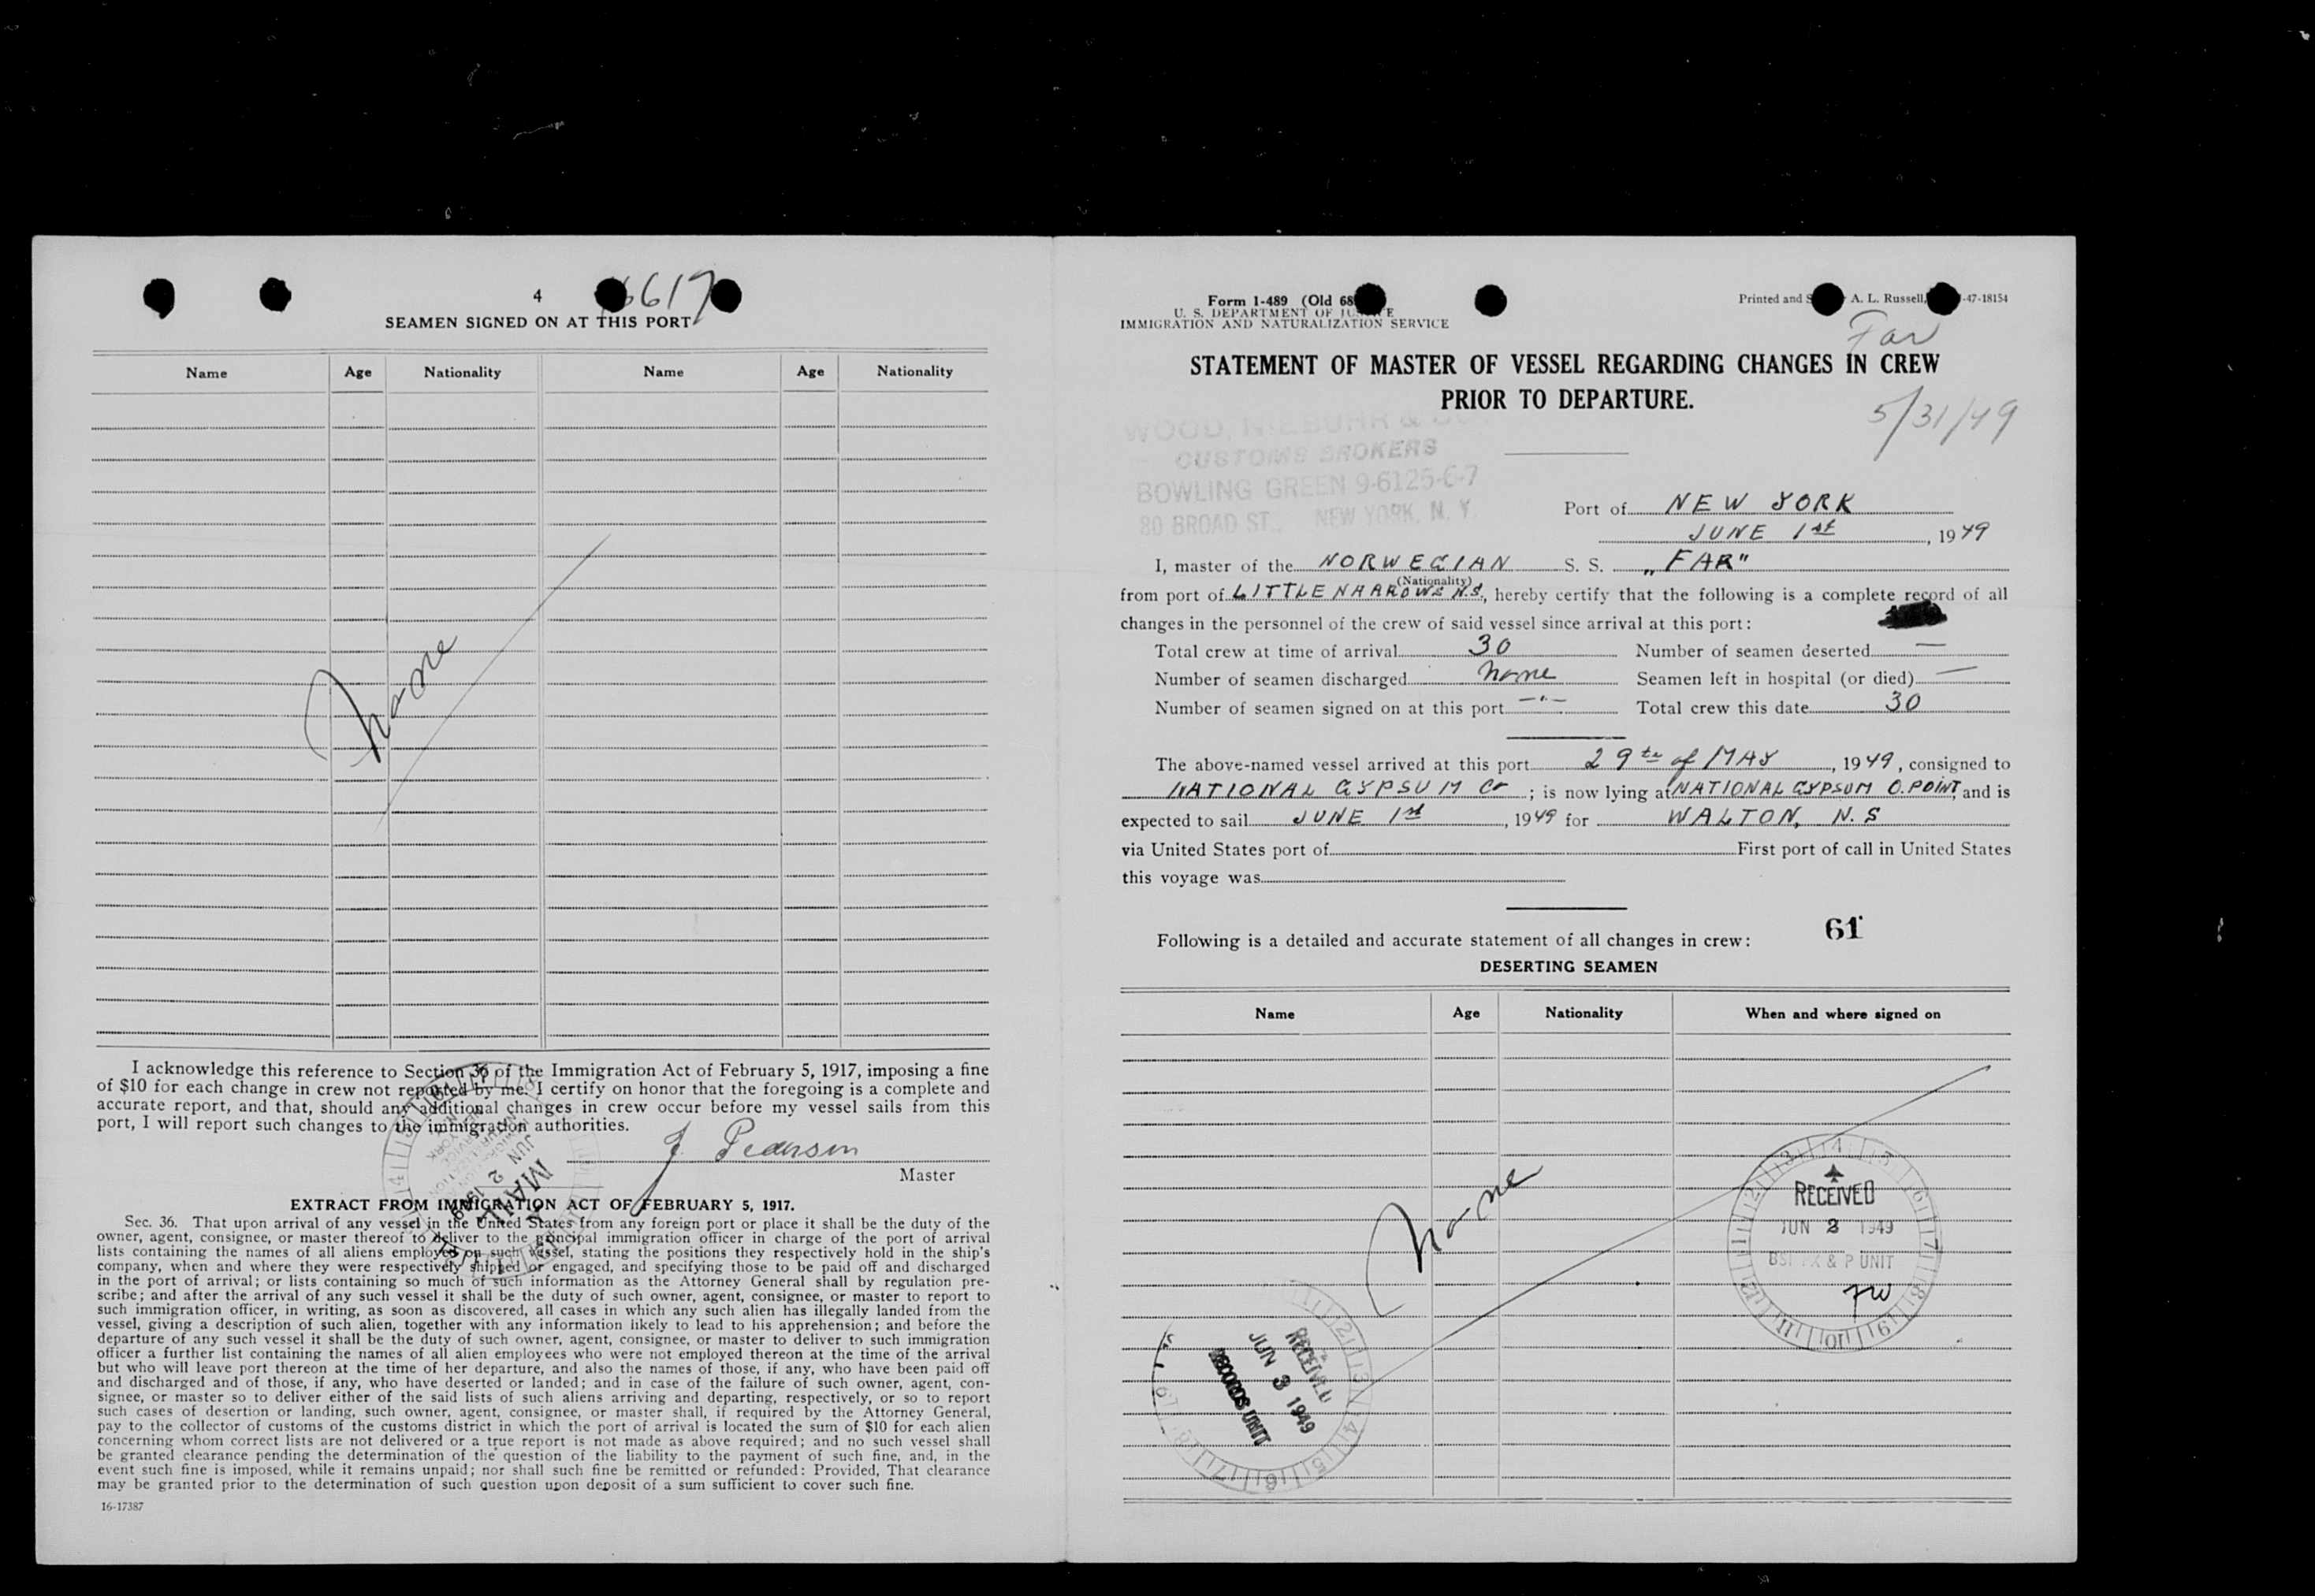 4
6617
SEAMEN SIGNED ON AT THIS PORT
Name Age Nationality Name Age Nationality
None
I acknowledge this reference to Section 36 of the Immigration Act of February 5, 1917, imposing a fine
of $10 for each change in crew not reported by me. I certify on honor that the foregoing is a complete and
accurate report, and that, should any additional changes in crew occur before my vessel sails from this
port, I will report such changes to the immigration authorities.
J Pearson
Master
MAIL
JUN 2 1949
EXTRACT FROM IMMIGRATION ACT OF FEBRUARY 5, 1917.
Sec. 36. That upon arrival of any vessel in the United States from any foreign port or place it shall be the duty of the
owner, agent, consignee, or master thereof to deliver to the principal immigration officer in charge of the port of arrival
lists containing the names of all aliens employed on such vessel, stating the positions they respectively hold in the ship's
company, when and where they were respectively shipped or engaged, and specifying those to be paid off and discharged
in the port of arrival; or lists containing so much of such information as the Attorney General shall by regulation pre-
scribe; and after the arrival of any such vessel it shall be the duty of such owner, agent, consignee, or master to report to
such immigration officer, in writing, as soon as discovered, all cases in which any such alien has illegally landed from the
vessel, giving a description of such alien, together with any information likely to lead to his apprehension; and before the
departure of any such vessel it shall be the duty of such owner, agent, consignee, or master to deliver to such immigration
officer a further list containing the names of all alien employees who were not employed thereon at the time of the arrival
but who will leave port thereon at the time of her departure, and also the names of those, if any, who have been paid off
and discharged and of those, if any, who have deserted or landed; and in case of the failure of such owner, agent, con-
signee, or master so to deliver either of the said lists of such aliens arriving and departing, respectively, or so to report
such cases of desertion or landing, such owner, agent, consignee, or master shall, if required by the Attorney General,
pay to the collector of customs of the customs district in which the port of arrival is located the sum of $10 for each alien
concerning whom correct lists are not delivered or a true report is not made as above required; and no such vessel shall
be granted clearance pending the determination of the question of the liability to the payment of such fine, and, in the
event such fine is imposed, while it remains unpaid; nor shall such fine be remitted or refunded: Provided, That clearance
may be granted prior to the determination of such question upon deposit of a sum sufficient to cover such fine.
16-17387
Form 1-489 (Old 68
U. S. DEPARTMENT OF JUSTICE
IMMIGRATION AND NATURALIZATION SERVICE
Printed and A. L. Russell, -47-18154
Far
STATEMENT OF MASTER OF VESSEL REGARDING CHANGES IN CREW
PRIOR TO DEPARTURE.
5/31/49
WOOD, NIEBUHR &
CUSTOMS BROKERS
BOWLING GREEN 9-6125-6-7
80 BROAD ST., NEW YORK, N. Y.
Port of NEW YORK
JUNE 1st, 1949
I, master of the NORWEGIAN S. S. „FAR"
(Nationality)
from port of LITTLE NARROWS N.S., hereby certify that the following is a complete record of all
changes in the personnel of the crew of said vessel since arrival at this port:
Total crew at time of arrival 30 Number of seamen deserted —
Number of seamen discharged None Seamen left in hospital (or died) —
Number of seamen signed on at this port —"— Total crew this date 30
The above-named vessel arrived at this port 29th of MAY, 1949, consigned to
NATIONAL GYPSUM Co; is now lying at NATIONAL GYPSUM O.POINT, and is
expected to sail JUNE 1st, 1949 for WALTON, N. S
via United States port of First port of call in United States
this voyage was
Following is a detailed and accurate statement of all changes in crew: 61
DESERTING SEAMEN
Name Age Nationality When and where signed on
None
RECEIVED
JUN 2 1949
& P UNIT
RECEIVED
JUN 3 1949
RECORDS UNIT